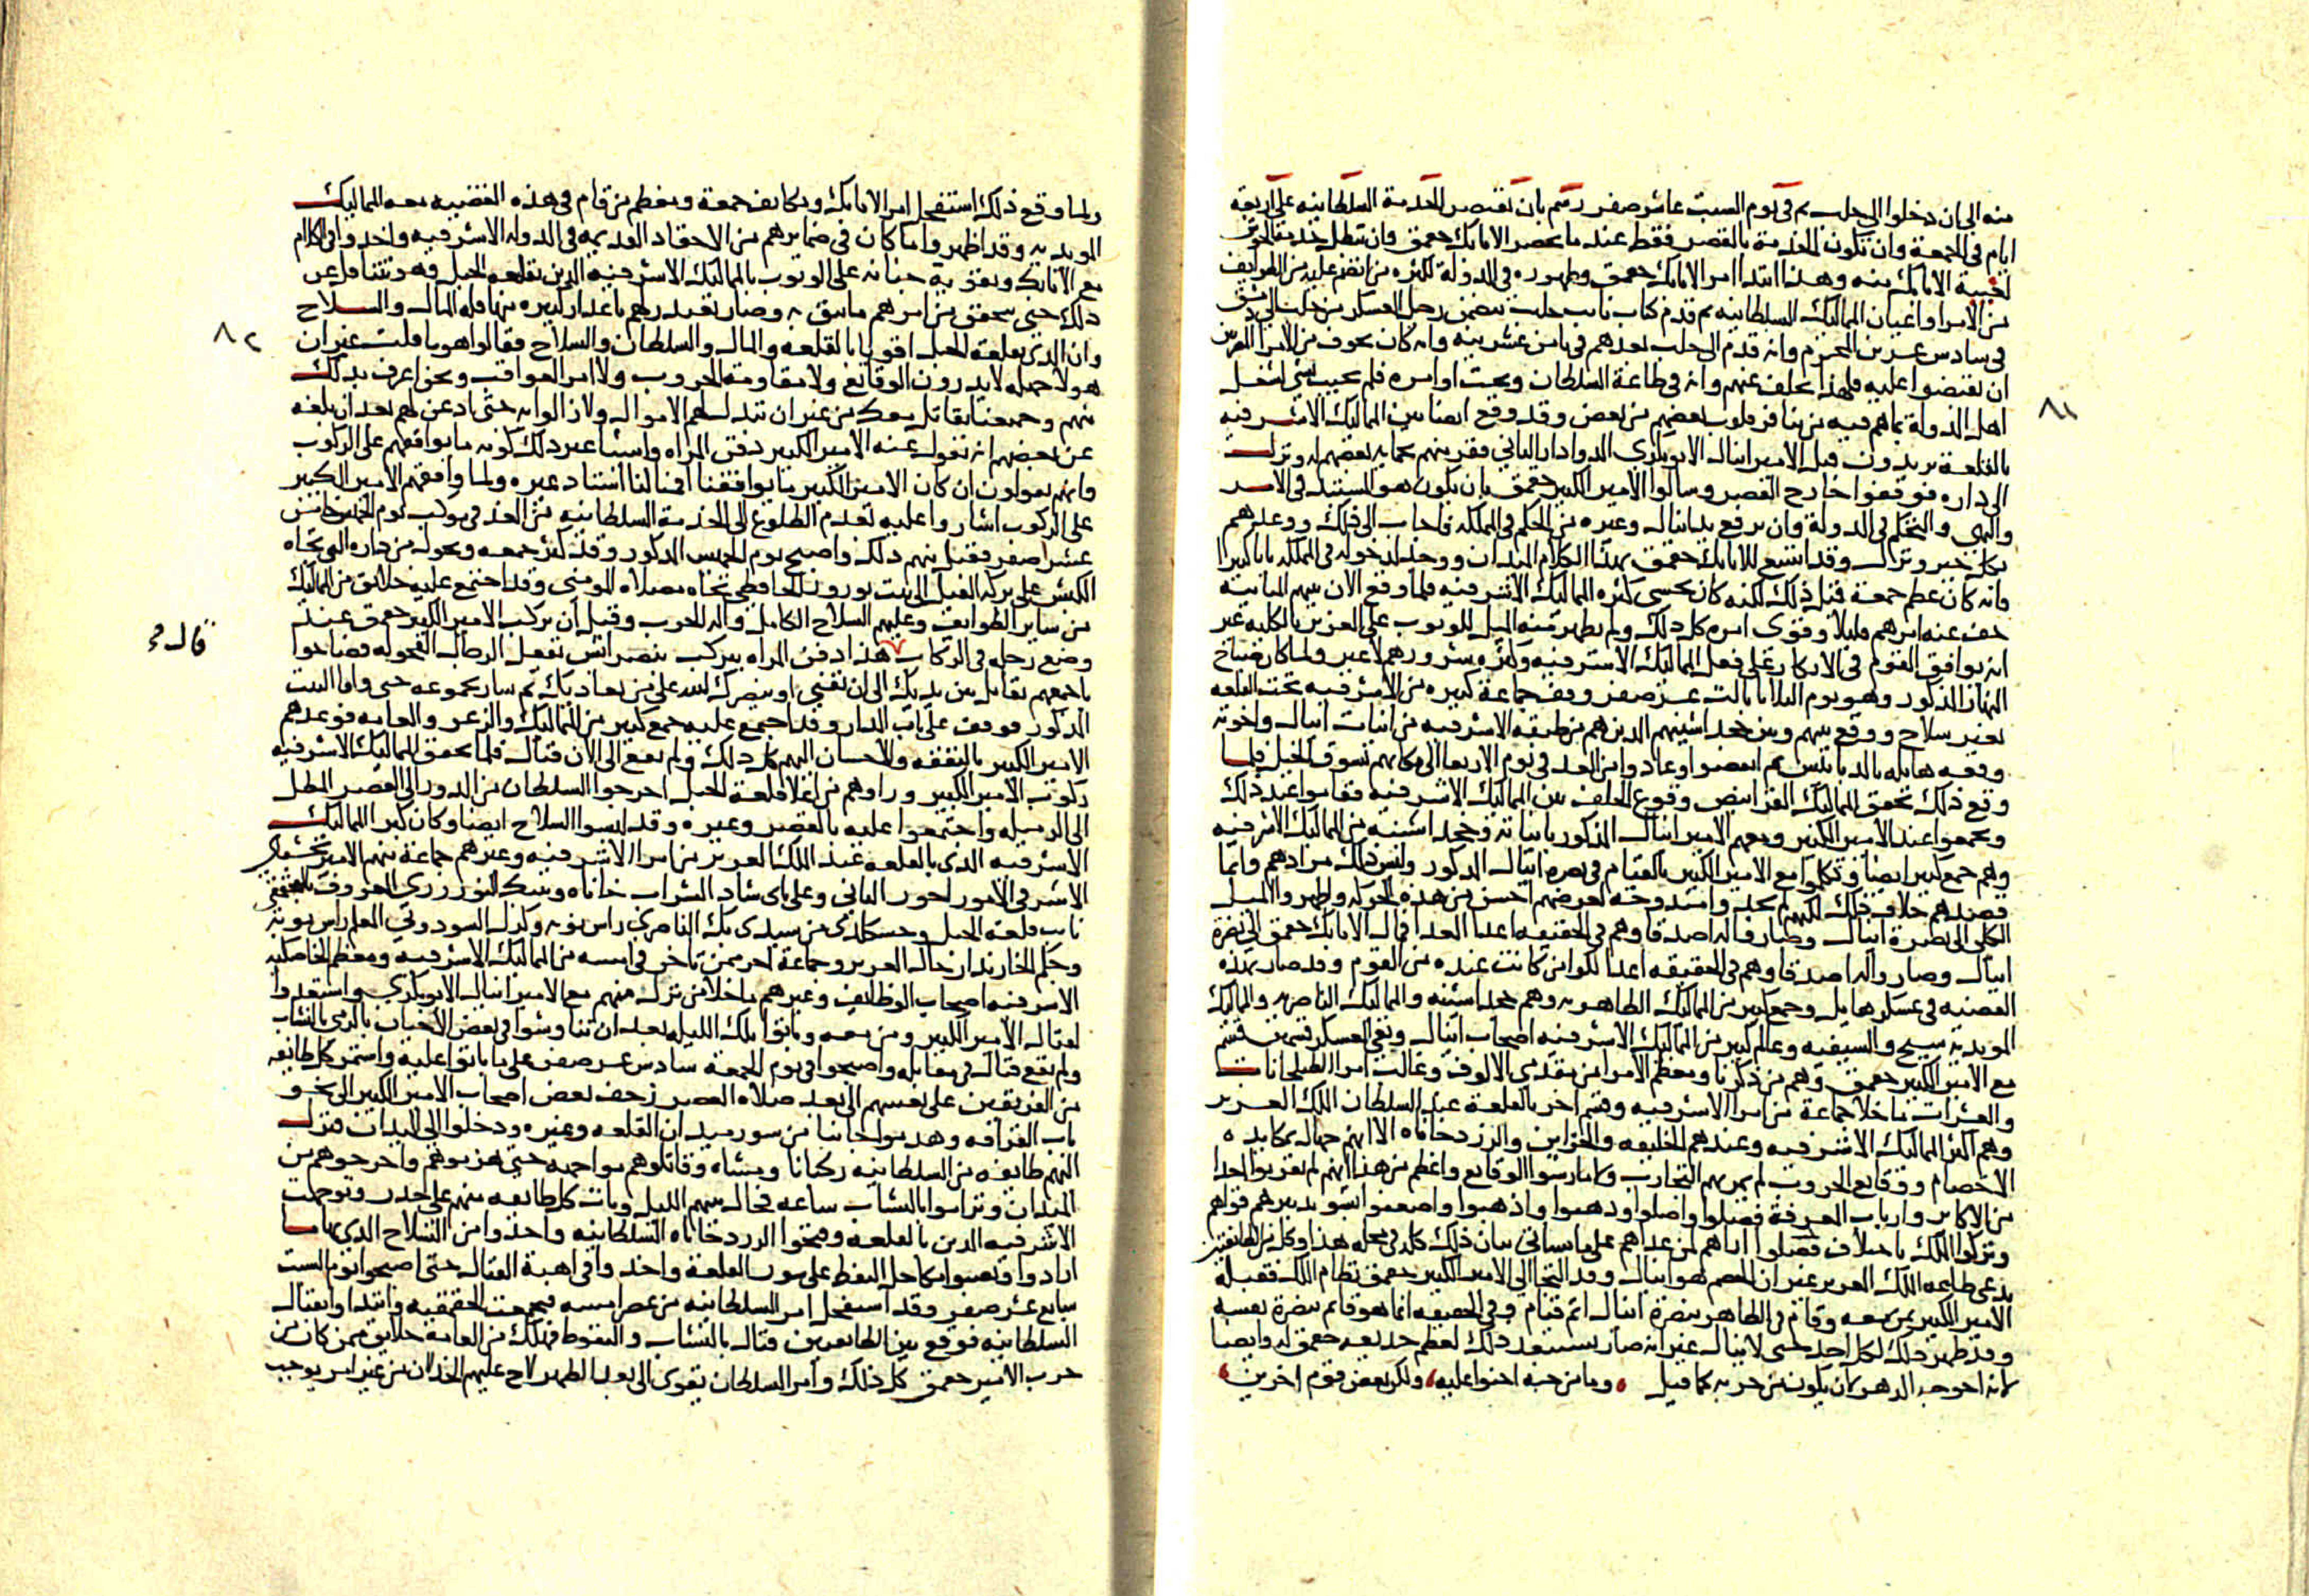 منه الى ان دخلوا الى حلب ثم فى يوم السبت عاشر صفر رسم بان تقتصر الخدمة السلطانيه على اربعة
ايام فى الجمعة وان تكون الخدمة بالقصر فقط عند ما يحضر الاتابك جقمق وان تبطل خدمة الحوش
لغيبة الاتابك منه وهذا ابتدا امر الاتابك جقمق وظهوره فى الدولة لكثرة من انضم عليه من الطوايف
من الامرا واعيان المماليك السلطانيه ثم قدم كتاب نايب حلب يتضمن رحل العسكر من حلب الى
فى سادس عشرين المحرم وانه قدم الى حلب بعدهم فى ثامن عشرينه وانه كان تخوف من الامرا
ان يقبضوا عليه فلهذا تخلف عنهم وانه فى طاعة السلطان وتحت اوامره فلم يجيب بشى لشغل
اهل الدولة بما هم فيه من تنافر قلوب بعضهم من بعض وقد وقع ايضا بين المماليك الاشرفيه
بالقلعة يريدون قتل الامير اينال الابوبكرى الدوادار الثانى ففر منهم بحماية بعضهم له ونزل
الى داره فوقفوا خارج القصر وسالوا الامير الكبير جقمق بان يكون هو المستبد فى الامر
والنهى والتحكم فى الدولة وان يرفع يد اينال وغيره من الحكم فى المملكه فاجاب الى ذلك ووعدهم
بكل خير ونزل وقد اتسع للاتابك جقمق بهذا الكلام الميدان ووجد لدخوله فى المملكه بابا كبيرا
فانه كان عظم جمعة قبل ذلك لكنه كان يخشى كثرة المماليك الاشرفيه فلما وقع الان بينهم المباينة
خف عنه امرهم قليلا وقوى امره كل ذلك ولم يظهر منه الميل للوثوب على العزيز بالكليه غير
انه يوافق القوم فى الانكار على فعل المماليك الاشرفيه وكثرة شرورهم لا غير ولما كان
النهار المذكور وهو يوم الثلاثا ثالث عشر صفر وقف جماعة كبيره من الاشرفيه تحت القلعه
بغير سلاح ووقع بينهم وبين خجداشينهم الذين هم من طبقه الاشرفيه من انيات اينال واخوته
وقعه هايله بالدبابيس ثم انفضوا وعادوا من الغد فى يوم الاربعا الى مكانهم بسوق الخيل فلما
وقع ذلك تحقق المماليك القرانيص وقوع الخلف بين المماليك الاشرفيه فقاموا عند ذلك
وتجمعوا عند الامير الكبير ومعهم الامير اينال المذكور بانياته وخجداشيته من المماليك الاشرفيه
وهم جمع كبير ايضا وتكلموا مع الامير الكبير بالقيام فى نصرة اينال المذكور وليس ذلك مرادهم وانما
قصدهم خلاف ذلك لكنهم لم يجدوا مندوحة لغرضهم احسن من هذه الحركه واظهروا الميل
الكلى الى نصرة اينال وصاروا له اصدقا وهم فى الحقيقه اعدا العدا فمال الاتابك جقمق الى نصرة
اينال وصاروا له اصدقا وهم فى الحقيقه اعدا لكوامن كانت عنده من القوم وقد صار بهذه
القضيه فى عسكر هايل وجمع كبير من المماليك الظاهريه وهم خجداشيته والمماليك الناصريه والمماليك
المويديه شيخ والسيفيه وعالم كبير من المماليك الاشرفيه اصحاب اينال وبقى العسكر قسمين قسم
مع الامير الكبير جقمق وهم من ذكرنا ومعظم الامرا من مقدمى الالوف وغالب امرا الطبلخانات
والعشرات ما خلا جماعة من امرا الاشرفيه وقسم اخر بالقلعة عند السلطان الملك العزيز
وهم اكثر المماليك الاشرفيه وعندهم الخليفه والخزاين والزردخاناه الا انهم جهال بمكايده
الاخصام ووقايع الحروب لم تمر بهم التجارب ولا مارسوا الوقايع واعظم من هذا انهم لم يقربوا احدا
من الاكابر وارباب المعرفة فضلوا واضلوا وذهبوا واذهبوا واضعفوا بسو تدبيرهم قواهم
وتركوا الملك باختلاف فضلوا اياهم لمن عداهم على ما سياتى بيان ذلك كله فى محله هذا وكل من الطايفتين
يدعى طاعه الملك العزيز غير ان الخصم لهو اينال وقد التجا الى الامير الكبير جقمق نظام الملك فقبله
الامير الكبير بمن معه وقام فى الظاهر بنصرة اينال اتم قيام وفى الحقيقه انما هو قام بنصرة نفسه
وقد ظهر ذلك لكل احد حتى لاينال غير انه صار يستبعد ذلك لعظم خديعه جقمق له وايضا
لانه احوجه الدهر لان يكون من حزبه كما قيل وما من حبه احنوا عليه ولكن بغض قوم اخرين
٨١
ولما وقع ذلك استفحل امر الاتابك وتكاثف جمعة ومعظم من قام فى هذه القضيه معه المماليك
المويديه وقد اظهروا ما كان فى ضمايرهم من الاحقاد القديمه فى الدوله الاشرفيه واخذوا فى الكلام
مع الاتابك وتقوية جنانه على الوثوب بالمماليك الاشرفيه الذين بقلعه الجبل وهو يتثاقل عن
ذلك حتى يتحقق من امرهم ما يثق به وصار يعتذر لهم باعذار كبيره منها قله المال والسلاح
وان الذين بقلعة الجبل اقويا بالقلعه والمال والسلطان والسلاح فقالوا هو ما قلت غير ان
هولا جهله لا يدرون الوقايع ولا مقاومة الحروب ولا امر العواقب ونحن اعرف بذلك
منهم وجمعنا يقاتل معك من غير ان تبذل لهم الاموال ولا زالوا به حتى اذعن لهم بعد ان بلغه
عن بعضهم انه يقول عنه الامير الكبير دقن المراه واشيا غير ذلك كونه ما يوافقهم على الركوب
وانهم يقولون ان كان الامير الكبير ما يوافقنا اقمنا لنا استاد غيره ولما وافقهم الامير الكبير
على الركوب اشاروا عليه بعدم الطلوع الى الخدمة السلطانيه من الغد فى موكب يوم الخميس خامس
عشر صفر فقبل منهم ذلك واصبح يوم الخميس المذكور وقد كثر جمعه وتحول من داره التى تجاه
الكبش على بركه الفيل الى بيت نوروز الحافظى تجاه مصلاه المومنى وقد اجتمع عليه خلايق من المماليك
من ساير الطوايف وعليهم السلاح الكامل واله الحرب وقبل ان يركب الامير الكبير جقمق عندما
وضع رحله فى الركاب هذا دقن المراه يركب بنصر ايش تفعل الرجال الفحوله فصاحوا
باجمعهم نقاتل بين يديك الى ان نفنى او ينصرك الله على من يعاديك ثم سار بجموعه حتى وافا البيت
المذكور فوقف على باب الدار وقد اجتمع عليه جمع كبير من المماليك والزعر والعامه فوعدهم
الامير الكبير بالنفقه والاحسان اليهم كل ذلك ولم يقع الى الان قتال فلما تحقق المماليك الاشرفيه
ركوب الامير الكبير وراوهم من اعلا قلعة الجبل اخرجوا السلطان من الدور الى القصر المطل
الى الرميله واجتمعوا عليه بالقصر وغيره وقد لبسوا السلاح ايضا وكان كبرا المماليك
الاشرفيه الذى بالقلعه عند الملك العزيز من امرا الاشرفيه وغيرهم جماعة منهم الامير
الاشرفى الامير اخور الثانى وعلى باى شاد الشراب خاناه وتنبك النوروزى المعروف
نايب قلعه الجبل وخشكلدى من سيدى بك الناصرى راس نوبه وكزل السودونى المعلم راس نوبه
وجكم الخازندار خال العزيز وجماعة اخر ممن تاخر فى امسه من المماليك الاشرفيه ومعظم الخاصكيه
الاشرفيه اصحاب الوظايف وغيرهم ما خلا من نزل منهم مع الامير اينال الابوبكرى واستعدوا
لقتال الامير الكبير ومن معه وباتوا تلك الليله بعد ان تناوشوا فى بعض الاحيان بالرمى بالنشاب
ولم يقع قتال فى مقابله واصبحوا فى يوم الجمعة سادس عشر صفر على ما باتوا عليه واستمر كل طايفه
من الفريقين على تعبيتهم الى بعد صلاه العصر زحف بعض اصحاب الامير الكبير الى نحو
باب القرافه وهدموا جانبا من سور ميدان القلعه وغيره ودخلوا الى الميدان فنزل
اليهم طايفه من السلطانيه ركبانا ومشاه وقاتلوهم مواجهة حتى هزموهم واخرجوهم من
الميدان وتراموا بالنشاب ساعه فحال بينهم الليل وبات كل طايفه منهم على حذر وتوجهت
الاشرفيه الذين بالقلعه وفتحوا الزردخاناه السلطانيه واخذوا من السلاح الذى بها ما
ارادوا ونصبوا مكاحل النفط على سور القلعة واخذوا فى اهبة القتال حتى اصبحوا يوم السبت
سابع عشر صفر وقد استفحل امر السلطانيه من عصر امسه فتجمعت الجقمقيه وابتدوا بقتال
السلطانيه فوقع بين الطايفتين قتال بالنشاب والنفوط فهلك من العامه خلايق ممن كان من
حزب الامير جقمق كل ذلك وامر السلطان يقوى الى بعد الظهر لاح عليهم الخذلان من غير امر يوجب
٨٢
قال